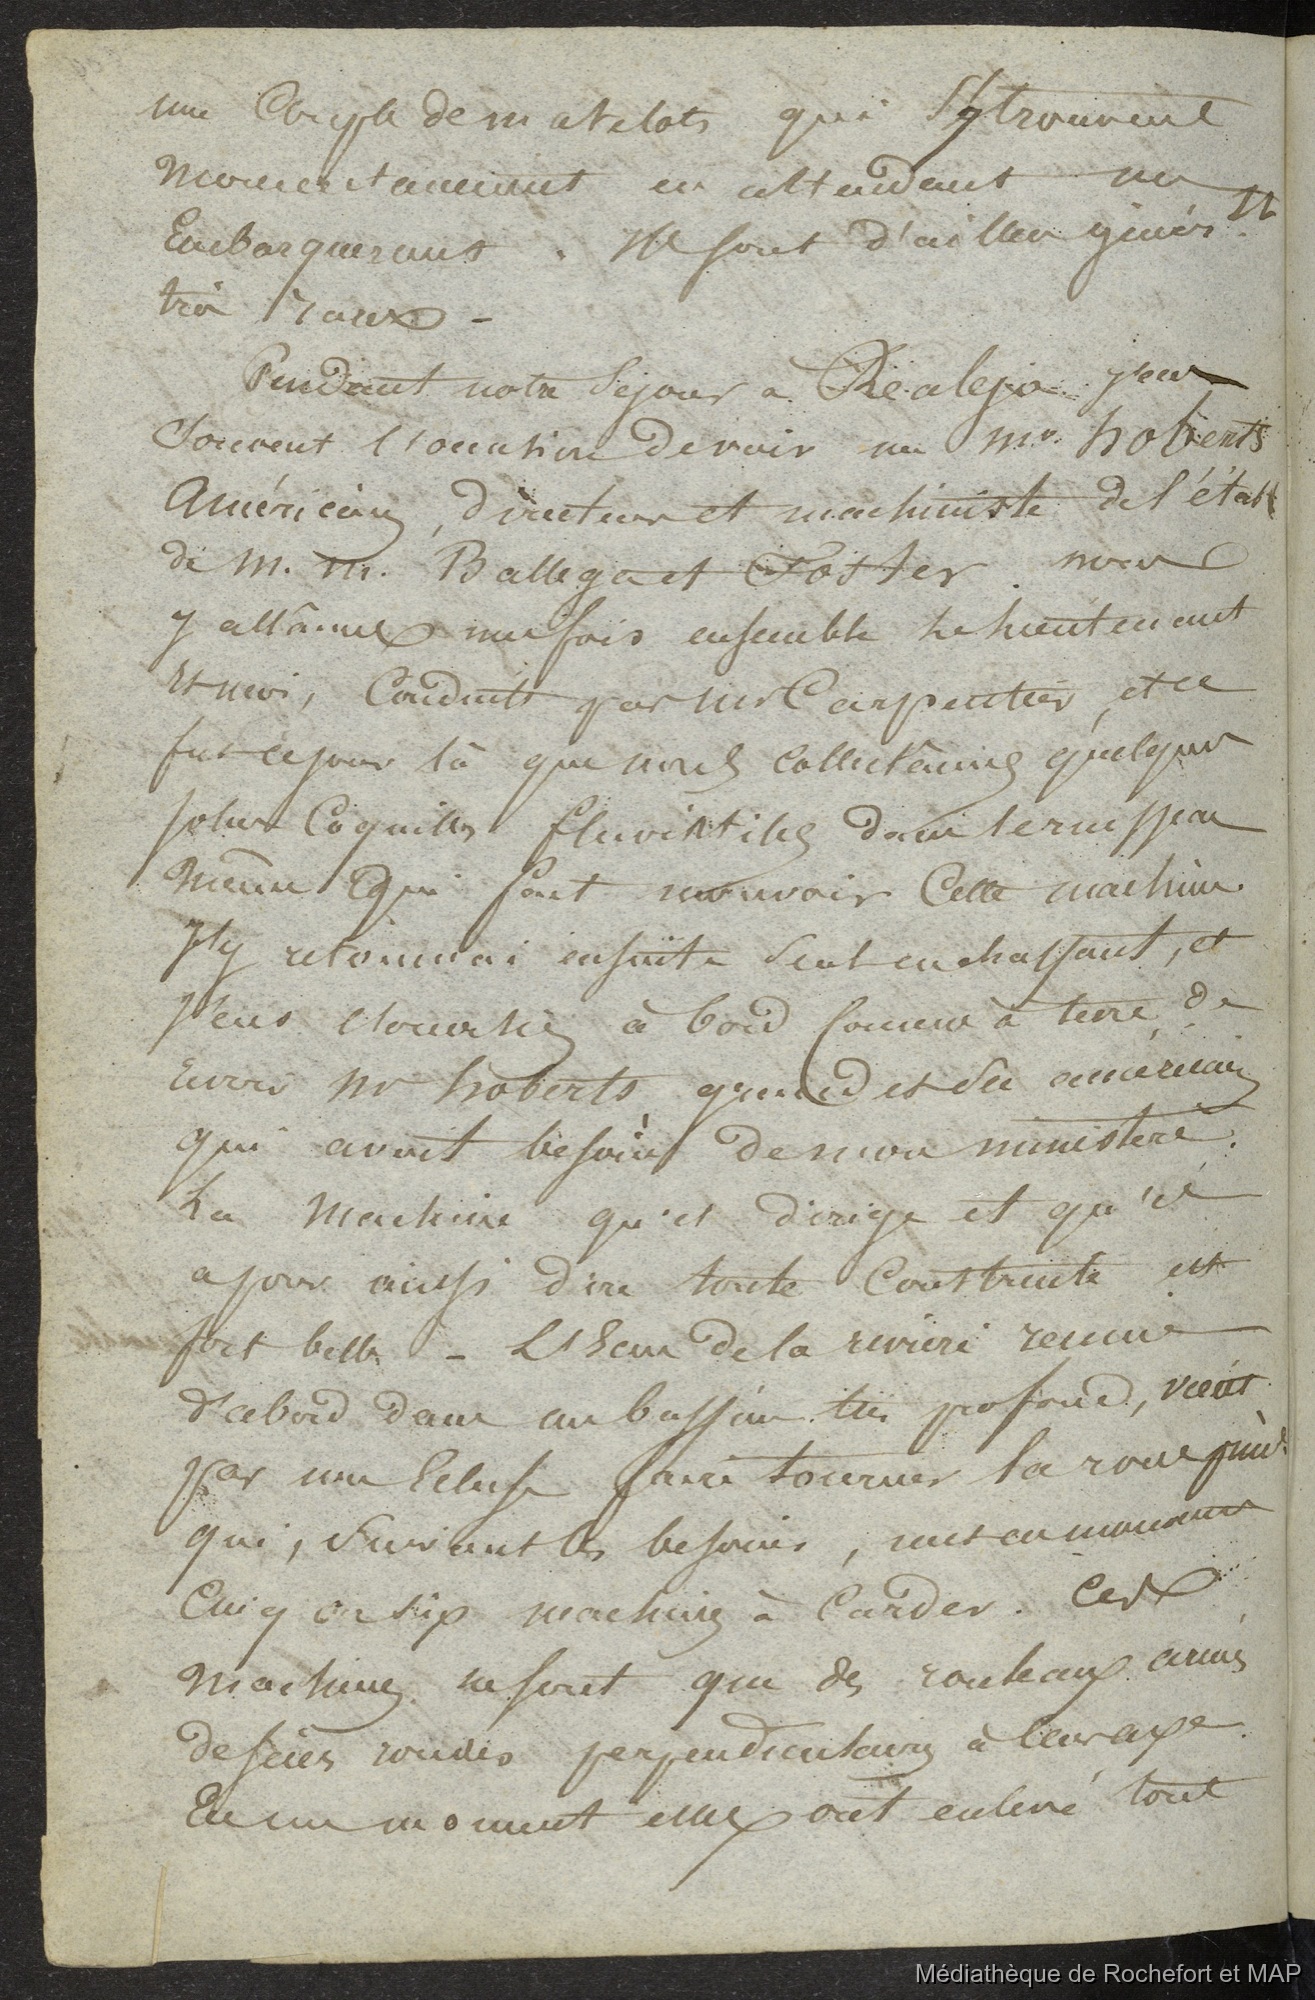 une Couple de matelots qui s'y trouvent
momentanément en attendant un
Embarquement. Ils sont d'ailleurs génér.lt
très rares -
Pendant notre séjour à Réalejo j'eus
souvent l'occasion de voir un mr. hoberts
américain, directeur et machiniste de l'étabt
de M. M. Ballega et Foster. nous
y allâmes une fois ensemble le lieutenant
et moi, Conduits par mr Carpentier, et ce
fut ce jour là que nous collectâmes quelques
jolies Coquilles fluviatiles dans le ruisseau
même qui fait mouvoir Cette machine.
J'y retournai ensuite seul en chassant, et
j'eus l'occasion à bord comme à terre de
revoir Mr hoberts américain
qui avait besoin de mon ministère.
La Machine qu'il dirige et qu'il
a pour ainsi dire toute Construite est
fort belle - L'Eau de la rivière réunie
d'abord dans un bassin très profond, vient
par une Ecluse faire tourner la roue
qui, suivant les besoins, met en mouvement
Cinq ou six machines à Carder. Ces
machines ne sont que des rouleaux armés
de scies rondes perpendiculaires à leur axe.
En un moment elles ont enlevé tout
Médiathèque de Rochefort et MAP